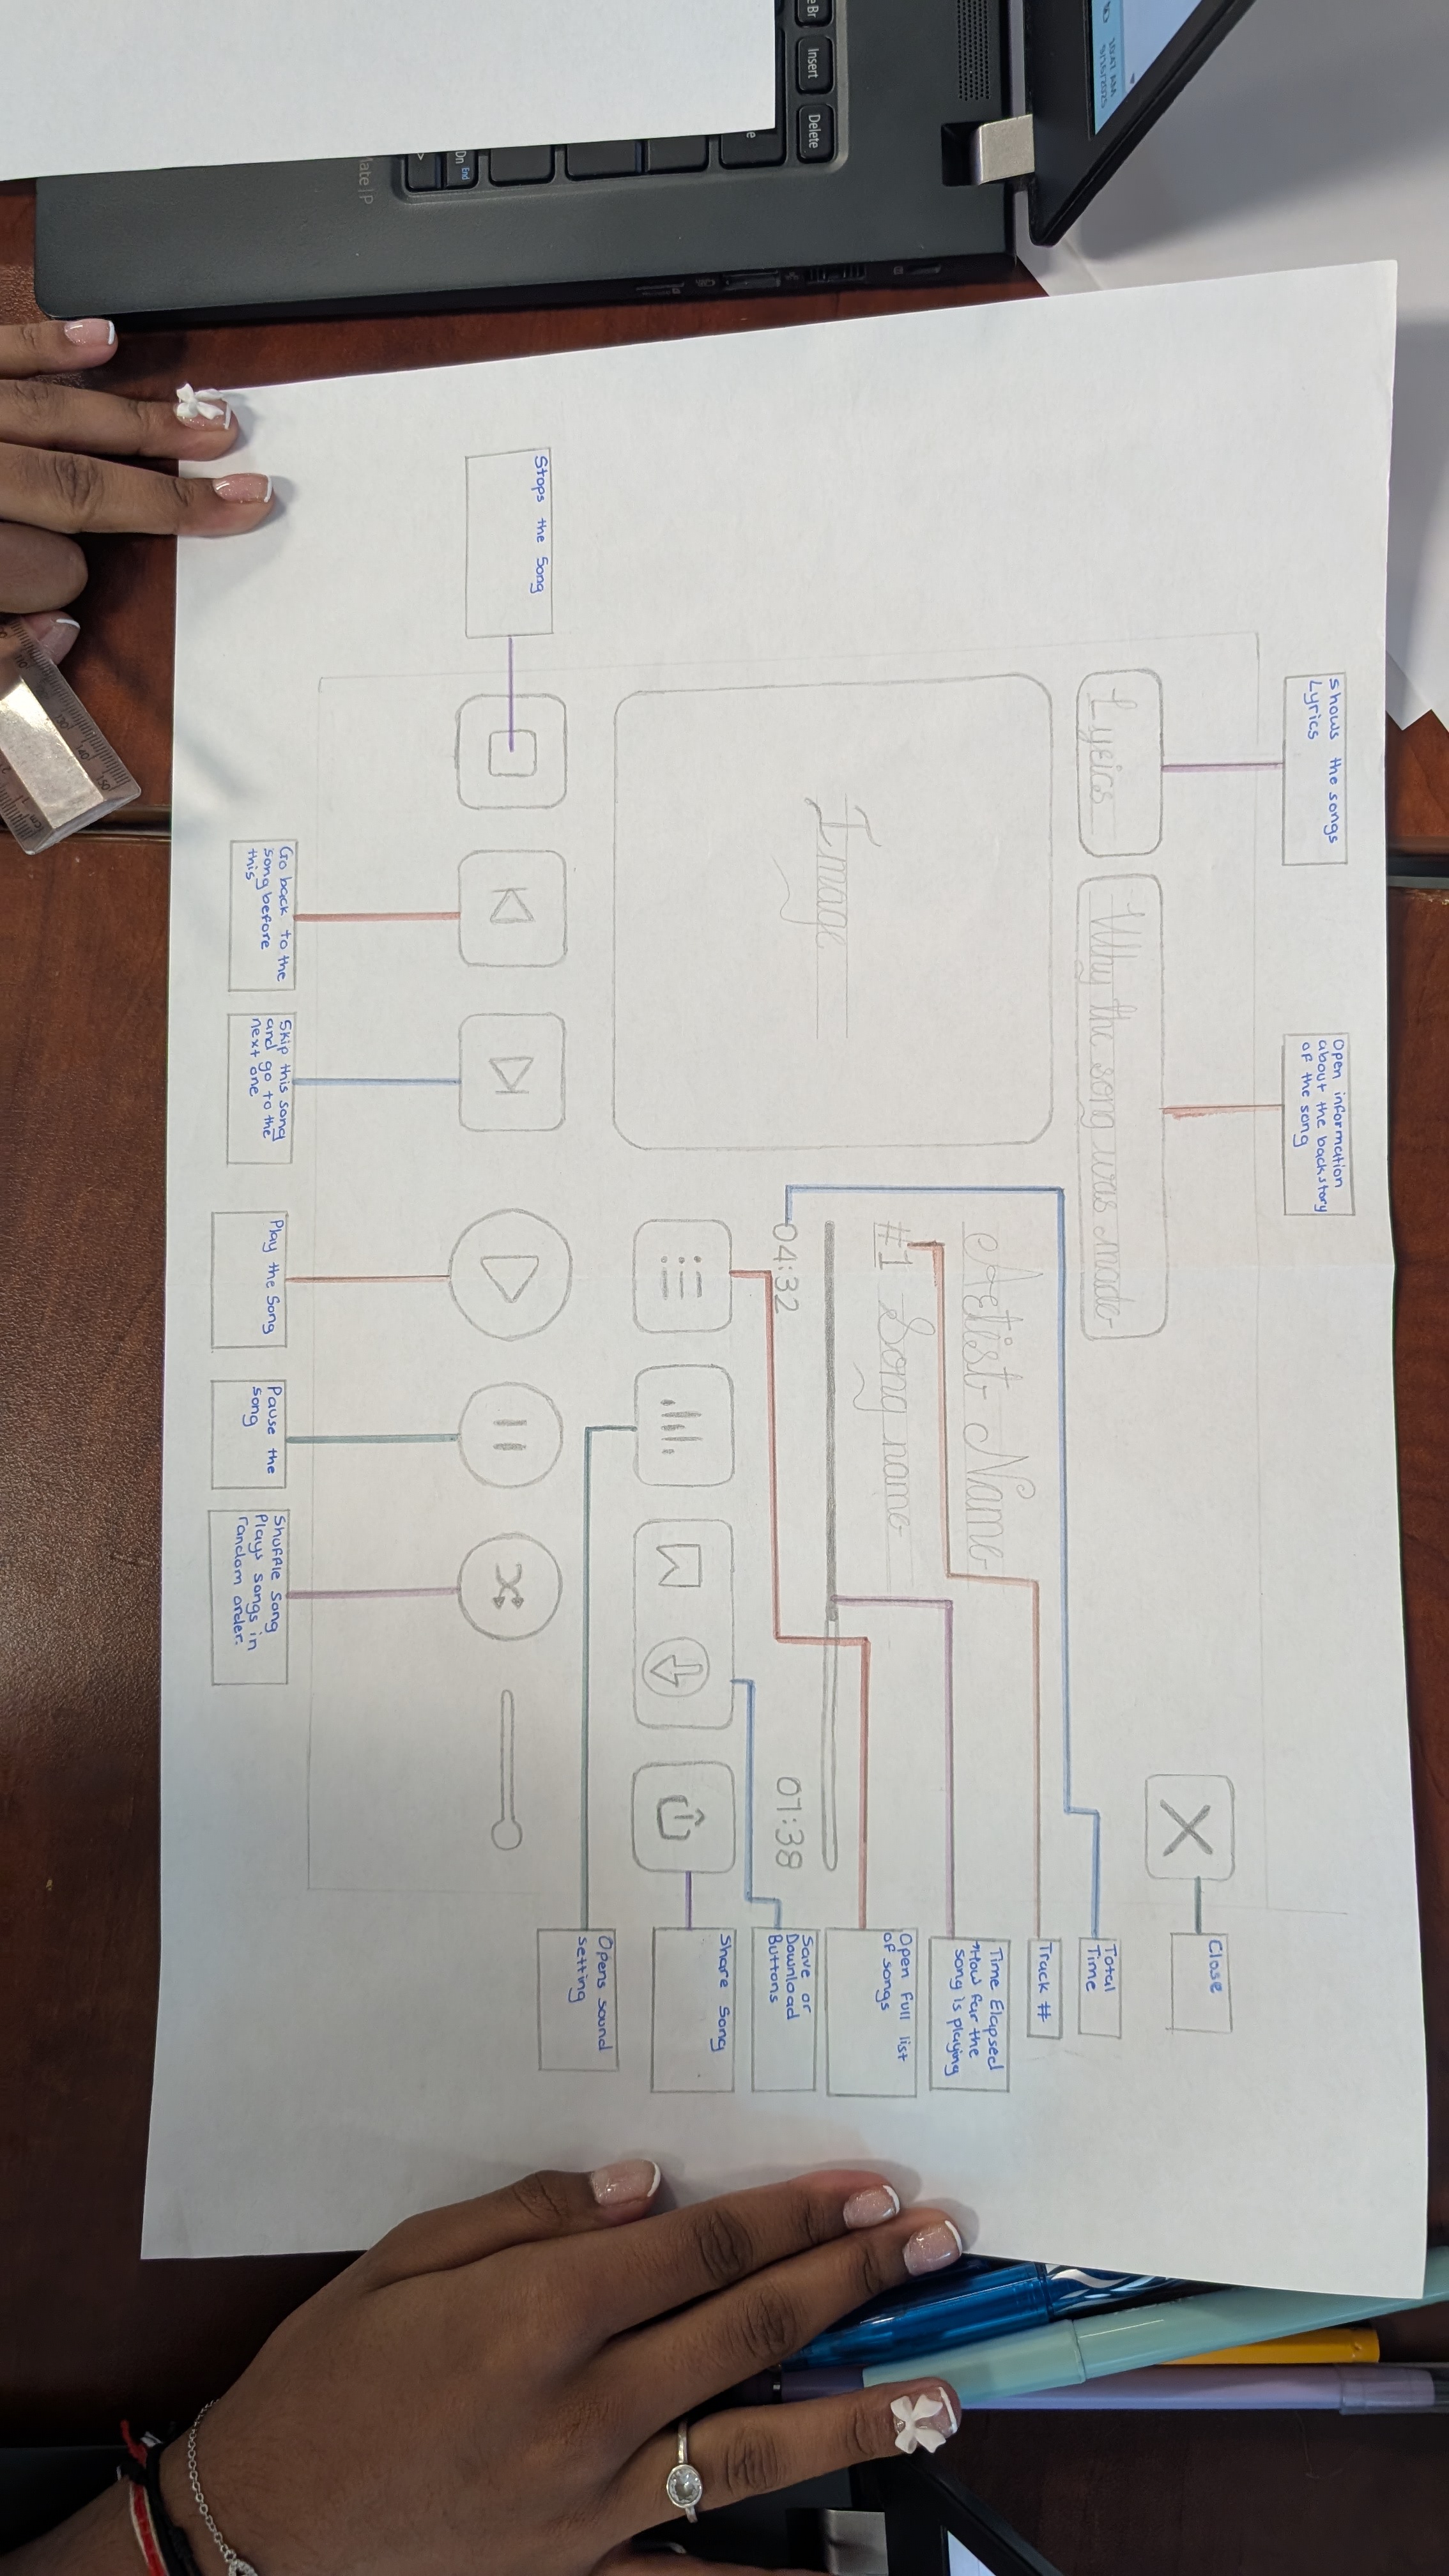 shows the songs
Lyrics
Open information
about the backstory
of the song
Lyrics
Why the song was made
Close
Total
Time
Track #
Time Elapsed
How far the
song is playing
Open full list
of songs
Save or
Download
Buttons
Share Song
Opens sound
setting
Image
Artist Name
#1 Song name
04:32
01:38
Stops the Song
Go back to the
song before
this
Skip this song
and go to the
next one
Play the Song
Pause the
song
Shuffle Song
Plays songs in
random order.
Insert
Delete
End
10:47 AM